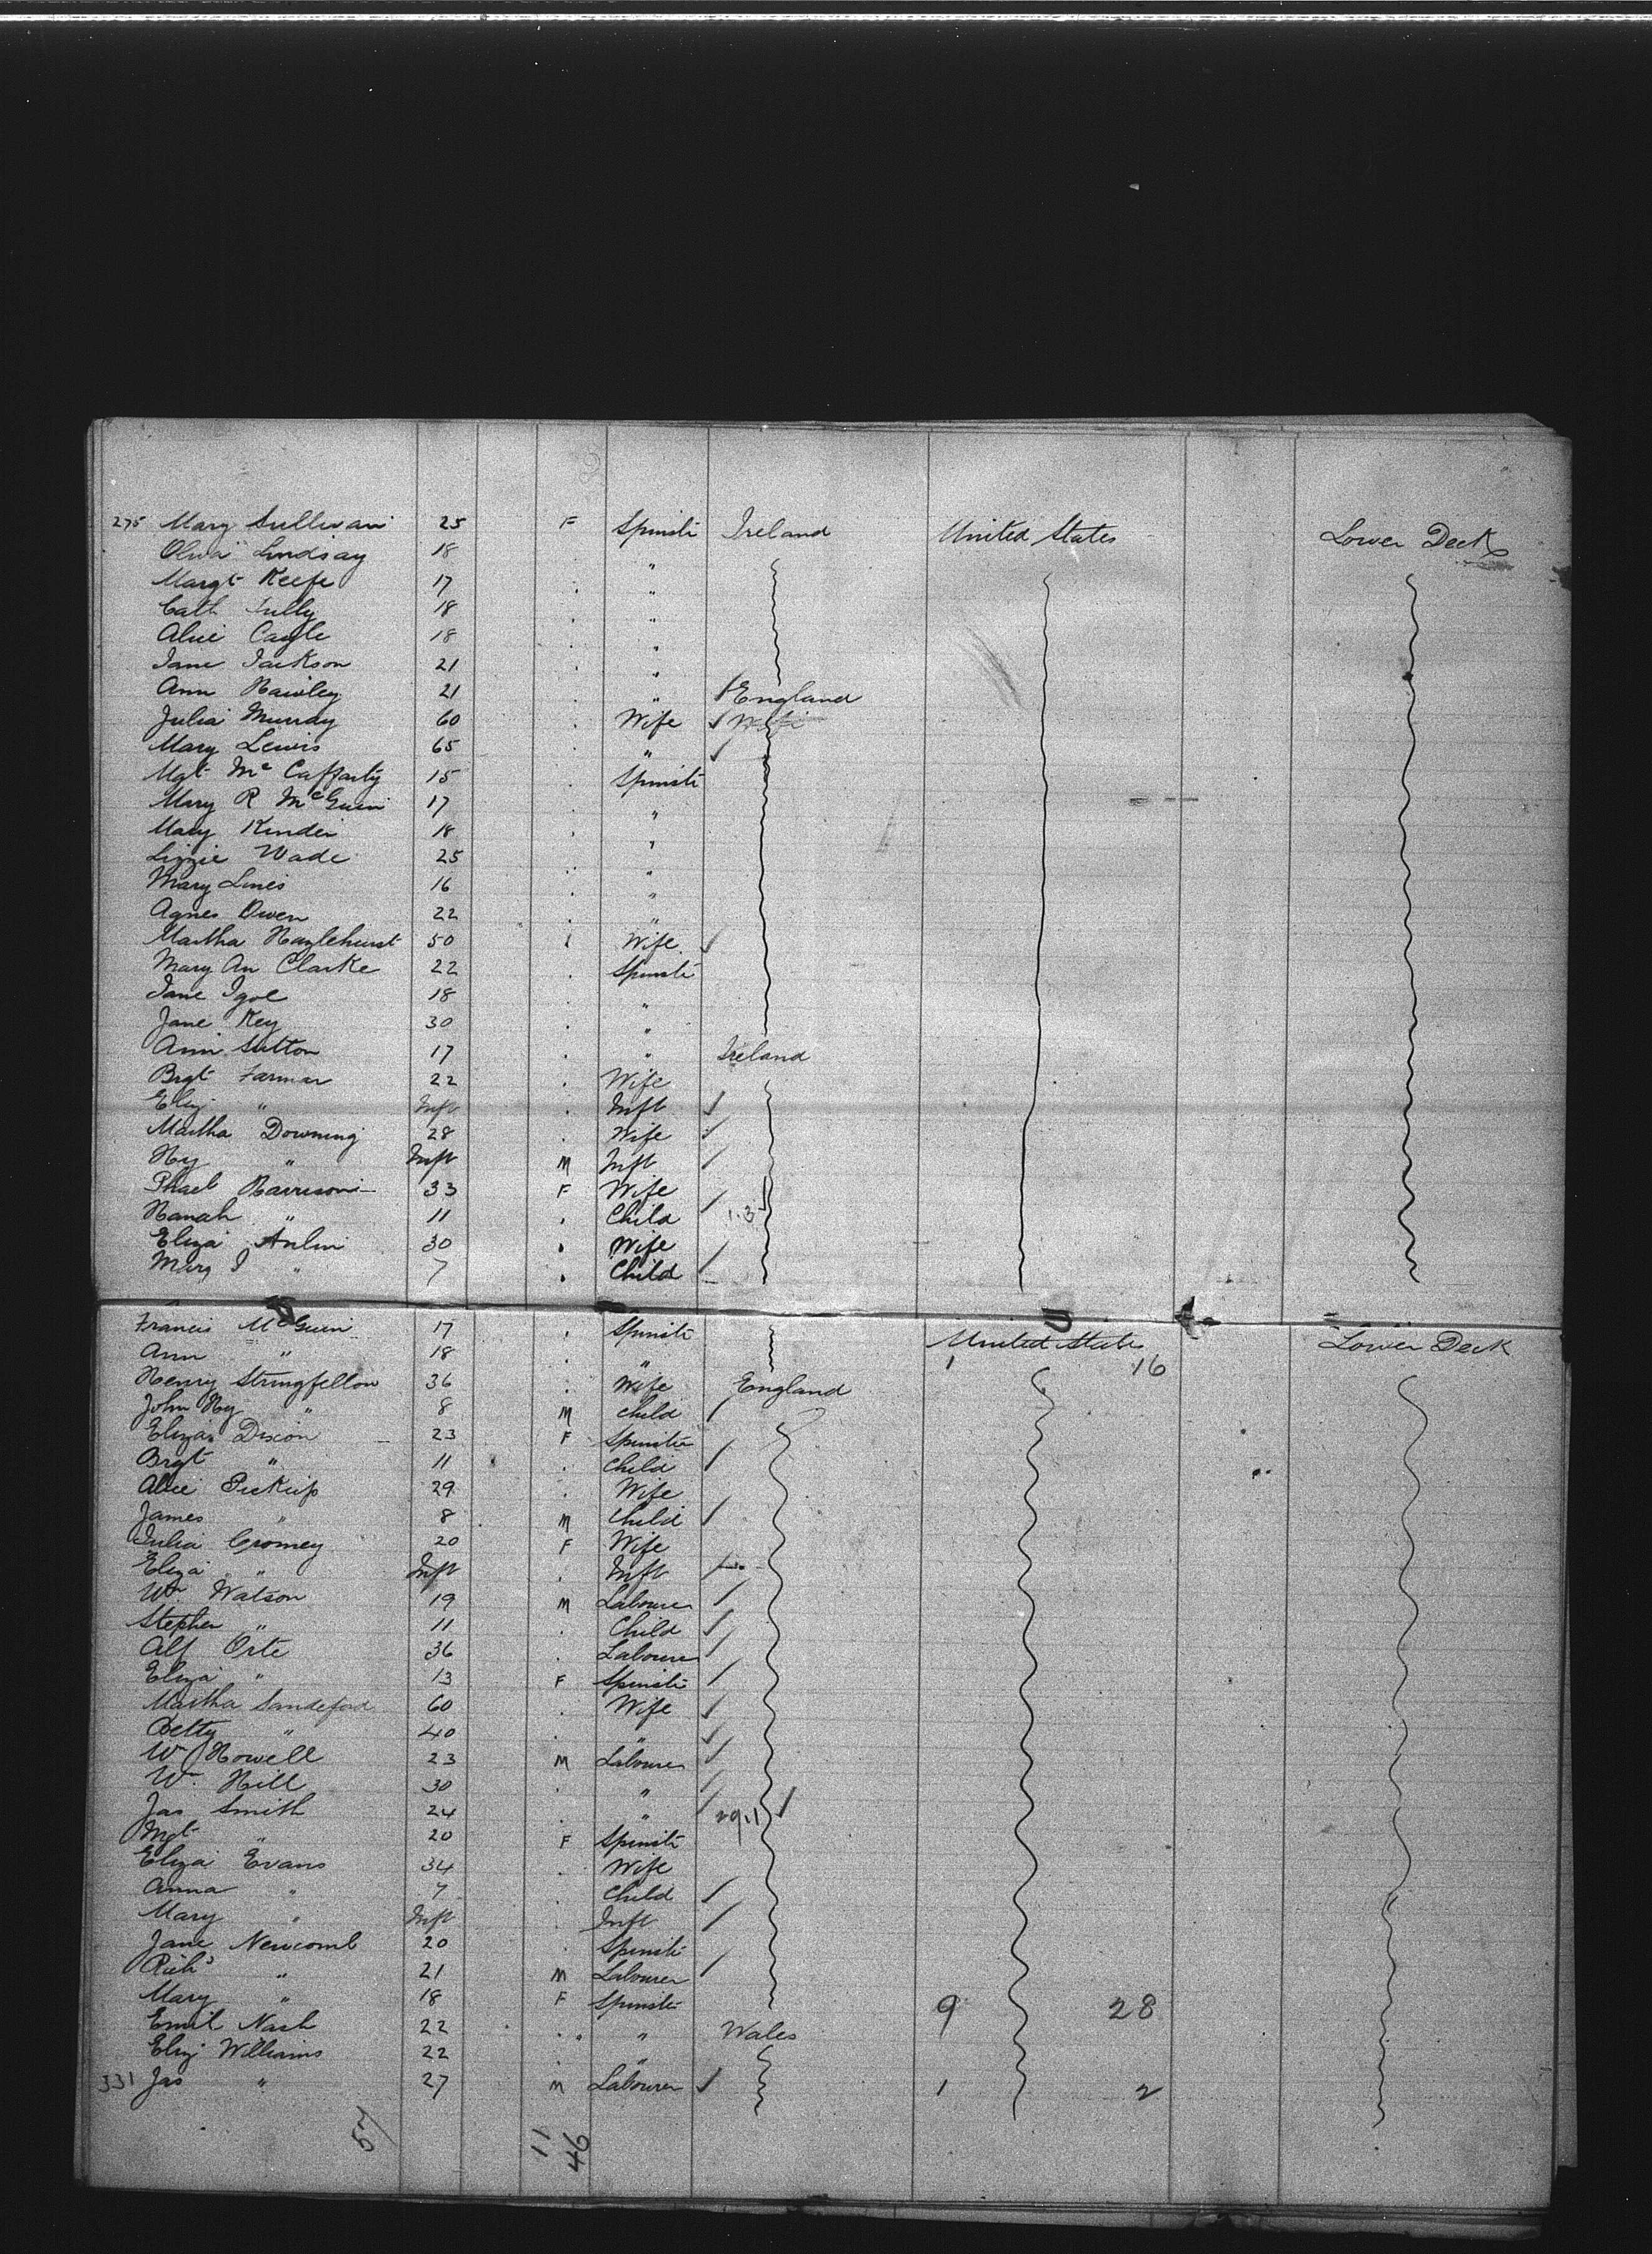 275 Mary Sullivan 25 F Spinstr Ireland United States Lower Deck
Olivia Lindsay 18 . "
Margt Keefe 17 . "
Cath 18 . "
Alice 18 . "
Jane Jackson 21 . "
Ann Hawley 21 . " England
Julia Murray 60 . Wife
Mary Lewis 65 . "
Mgt Mc Cafferty 15 . Spinstr
Mary R 17 . "
Mary Kinder 18 . "
Lizzie Wade 25 . "
Mary Lines 16 . "
Agnes Owen 22 . "
Martha Hazlehurst 50 . Wife
Mary An Clarke 22 . Spinstr
Jane Igoe 18 . "
Jane Key 30 . "
Ann Sutton 17 . " Ireland
Brgt Farmar 22 . Wife
Eliz " Inft . Inft
Martha Downing 28 . Wife
Hy " Inft M Inft
33 F Wife
Hanah " 11 . Child 1.3
Eliza 30 . Wife
Mary J " 7 . Child
Francis McGuin 17 . Spinstr United States Lower Deck
Ann " 18 . " 1 16
Henry Stringfellow 36 . Wife England
John Hy " 8 M Child
Eliza Dixon 23 F Spinstr
Brgt " 11 . Child
Alice Pickup 29 . Wife
James " 8 M Child
Julia Cromey 20 F Wife
Eliza " Inft . Inft
Wm Watson 19 M Labourer
Stephen " 11 . Child
Alf Orte 36 . Labourer
Eliza " 13 F Spinstr
Martha Sandeford 60 . Wife
Betty " 40 . "
Wm Howell 23 M Labourer
W. Hill 30 . "
Jas Smith 24 . " 29.1
Mgt " 20 F Spinstr
Eliza Evans 34 . Wife
Anna " 7 . Child
Mary " Inft . Inft
Jane Newcomb 20 . Spinstr
Richd " 21 M Labourer
Mary " 18 F Spinstr 9 28
Emil Nash 22 . " Wales
Eliz Williams 22 . "
331 Jas " 27 M Labourer 1 2
57 11 46